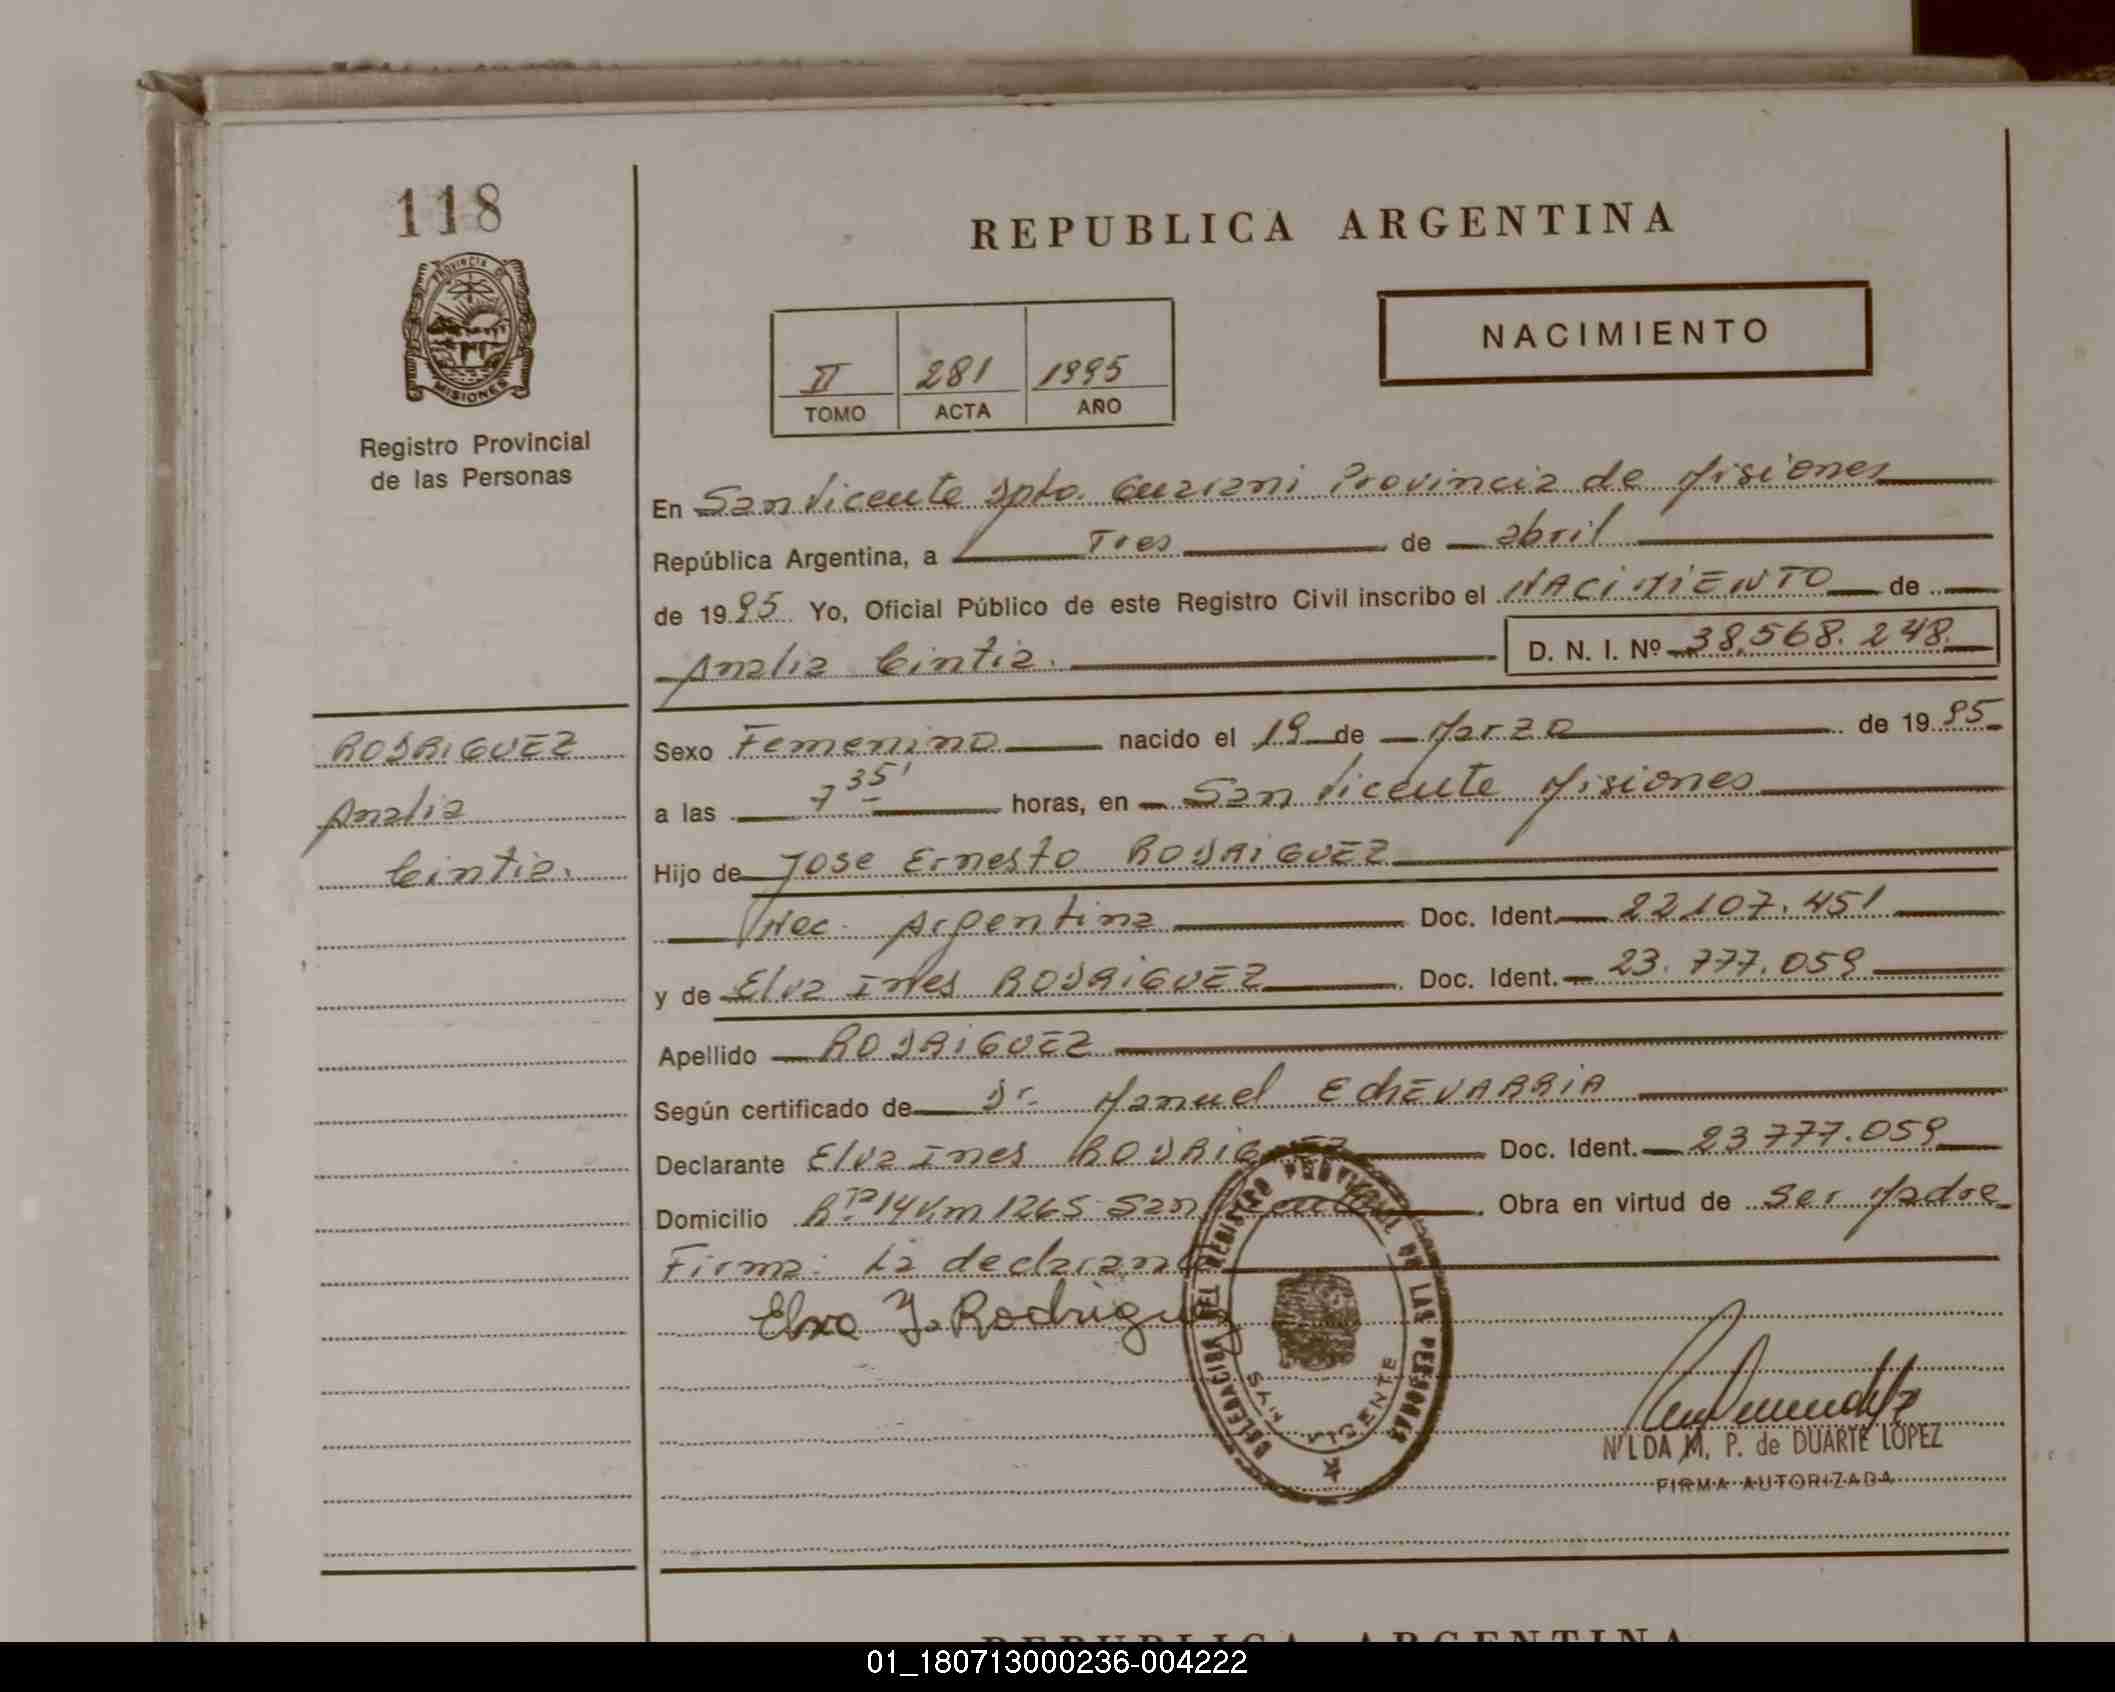 118
PROVINCIA DE
MISIONES
Registro Provincial
de las Personas
REPUBLICA ARGENTINA
NACIMIENTO
II 281 1995
TOMO ACTA AÑO
En San Vicente Dpto. Guarani Provincia de Misiones
República Argentina, a Tres de abril
de 1995 Yo, Oficial Público de este Registro Civil inscribo el NACIMIENTO de
Analia Cintia. D. N. I. Nº 38.568.248
RODRIGUEZ
Analia
Cintia.
Sexo Femenino nacido el 19 de Marzo de 1995
a las 7 35' horas, en San Vicente Misiones
Hijo de Jose Ernesto RODRIGUEZ
Nac. Argentina Doc. Ident. 22.107.451
y de Elva Ines RODRIGUEZ Doc. Ident. 23.777.059
Apellido RODRIGUEZ
Según certificado de Dr. Manuel EchEVARRIA
Declarante Elva Ines RODRIGUEZ Doc. Ident. 23.777.059
Domicilio Rta 14 Km 1265 San Obra en virtud de ser Madre
Firma: La declarante
Elva I. Rodriguez
DELEGACION DEL REGISTRO PROVINCIAL DE LAS PERSONAS
SAN VICENTE
NILDA M. P. de DUARTE LOPEZ
FIRMA AUTORIZADA
REPUBLICA ARGENTINA
01_180713000236-004222